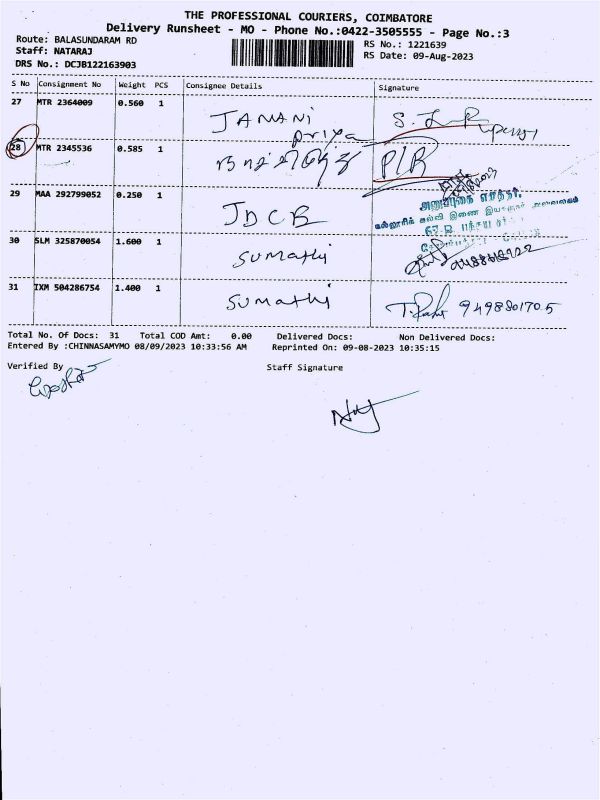 THE PROFESSIONAL COURIERS, COIMBATORE
Delivery Runsheet - MO - Phone No.:0422-3505555 - Page No.:3
Route: BALASUNDARAM RD
RS No.: 1221639
Staff: NATARAJ
RS Date: 09-Aug-2023
DRS No.: DCJB122163903
S No Consignment No Weight PCS Consignee Details Signature
27 MTR 2364009 0.560 1 JANANi
priya
28 MTR 2345536 0.585 1 P/R
29 MAA 292799052 0.250 1 JDCB
அலுவலகம்
30 SLM 325870054 1.600 1 SUMathi
31 IXM 504286754 1.400 1 SUMathi 9498801705
Total No. Of Docs: 31 Total COD Amt: 0.00 Delivered Docs: Non Delivered Docs:
Entered By :CHINNASAMYMO 08/09/2023 10:33:56 AM Reprinted On: 09-08-2023 10:35:15
Verified By Staff Signature